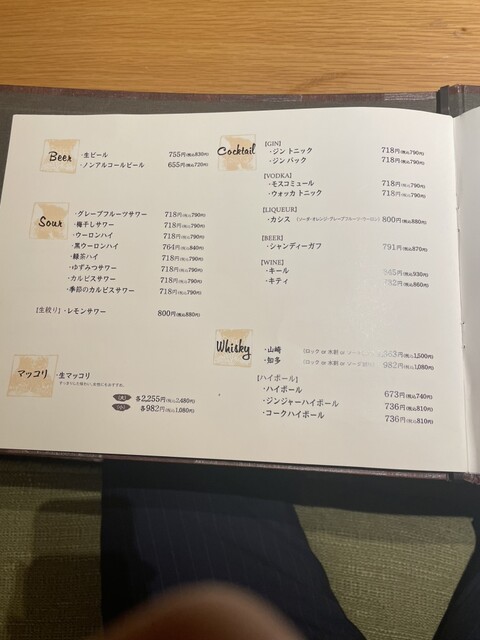 Beer
・生ビール 755円(税込830円)
・ノンアルコールビール 655円(税込720円)
Sour
・グレープフルーツサワー 718円(税込790円)
・梅干しサワー 718円(税込790円)
・ウーロンハイ 718円(税込790円)
・黒ウーロンハイ 764円(税込840円)
・緑茶ハイ 718円(税込790円)
・ゆずみつサワー 718円(税込790円)
・カルピスサワー 718円(税込790円)
・季節のカルピスサワー 718円(税込790円)
[生絞り]・レモンサワー 800円(税込880円)
マッコリ
・生マッコリ
すっきりした味わい。女性にもおすすめ。
各2,255円(税込2,480円)
各982円(税込1,080円)
Cocktail
[GIN]
・ジン トニック 718円(税込790円)
・ジン バック 718円(税込790円)
[VODKA]
・モスコミュール 718円(税込790円)
・ウォッカ トニック 718円(税込790円)
[LIQUEUR]
・カシス (ソーダ・オレンジ・グレープフルーツ・ウーロン) 800円(税込880円)
[BEER]
・シャンディーガフ 791円(税込870円)
[WINE]
・キール (税込930円)
・キティ (税込860円)
Whisky
・山崎 (ロック or 水割 or (税込1,500円)
・知多 (ロック or 水割 or 982円(税込1,080円)
[ハイボール]
・ハイボール 673円(税込740円)
・ジンジャーハイボール 736円(税込810円)
・コークハイボール 736円(税込810円)